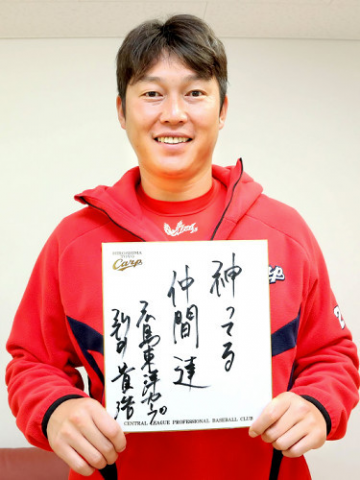 Carp
神ってる
仲間達
広島東洋カープ
新井貴浩
CENTRAL LEAGUE PROFESSIONAL BASEBALL CLUB